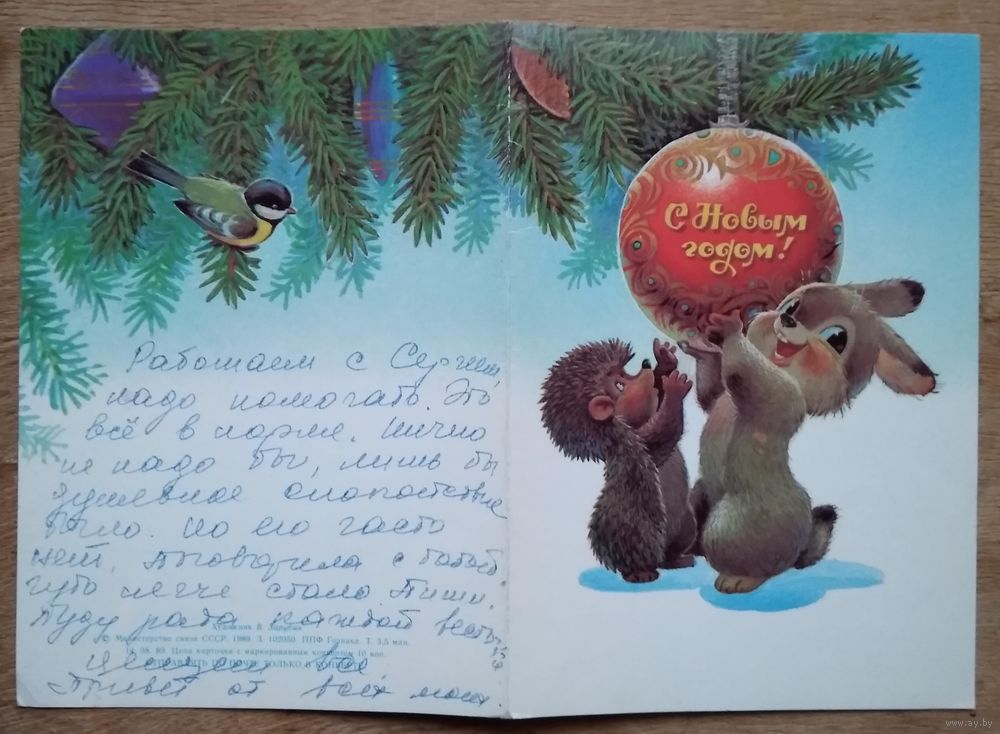 Работаем с Сергеем,
надо помогать. Это
всё в норме. Лично
не надо бы, лишь бы
душевное спокойствие
было. Но его часто
нет. Поговорила с тобой
чуть легче стало. Пиши.
Буду рада каждой весточ
Художник В. Зарубин
© Министерство связи СССР. 1989. З. 102050. ППФ Гознака. Т. 3,5 млн.
14. 08. 89. Цена карточки с маркированным конвертом 10 коп.
ОТПРАВЛЯТЬ ПО ПОЧТЕ ТОЛЬКО В КОНВЕРТЕ
Привет от всех моих
С Новым
годом!
www.ay.by